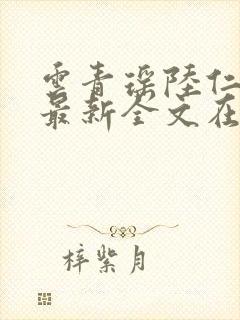 雲青瑶陸仁
最新全文在
梓紫月